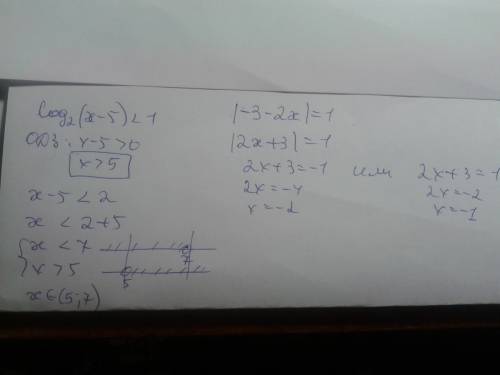 log₂(x-5)<1
ОДЗ: x-5>0
x>5
x-5<2
x<2+5
{x<7
{x>5
7
5
x∈(5;7)
|-3-2x|=1
|2x+3|=1
2x+3=-1 или 2x+3=1
2x=-4 2x=-2
x=-2 x=-1